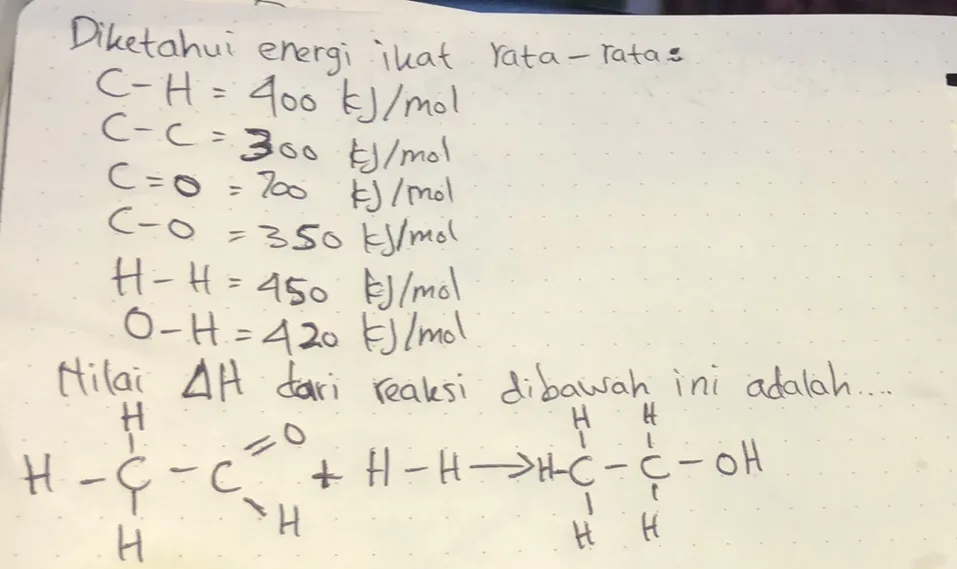 Diketahui energi ikat rata-rata:
C-H = 400 kJ/mol
C-C = 300 kJ/mol
C=O = 700 kJ/mol
C-O = 350 kJ/mol
H-H = 450 kJ/mol
O-H = 420 kJ/mol
Nilai ΔH dari reaksi dibawah ini adalah....
H H H
H - C - C = O + H - H → H-C - C - OH
H
H H H